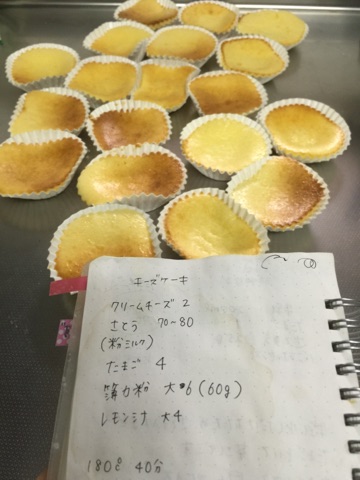 チーズケーキ
クリームチーズ 2
さとう 70~80
(粉ミルク)
たまご 4
薄力粉 大6 (60g)
レモン汁 大4
180℃ 40分